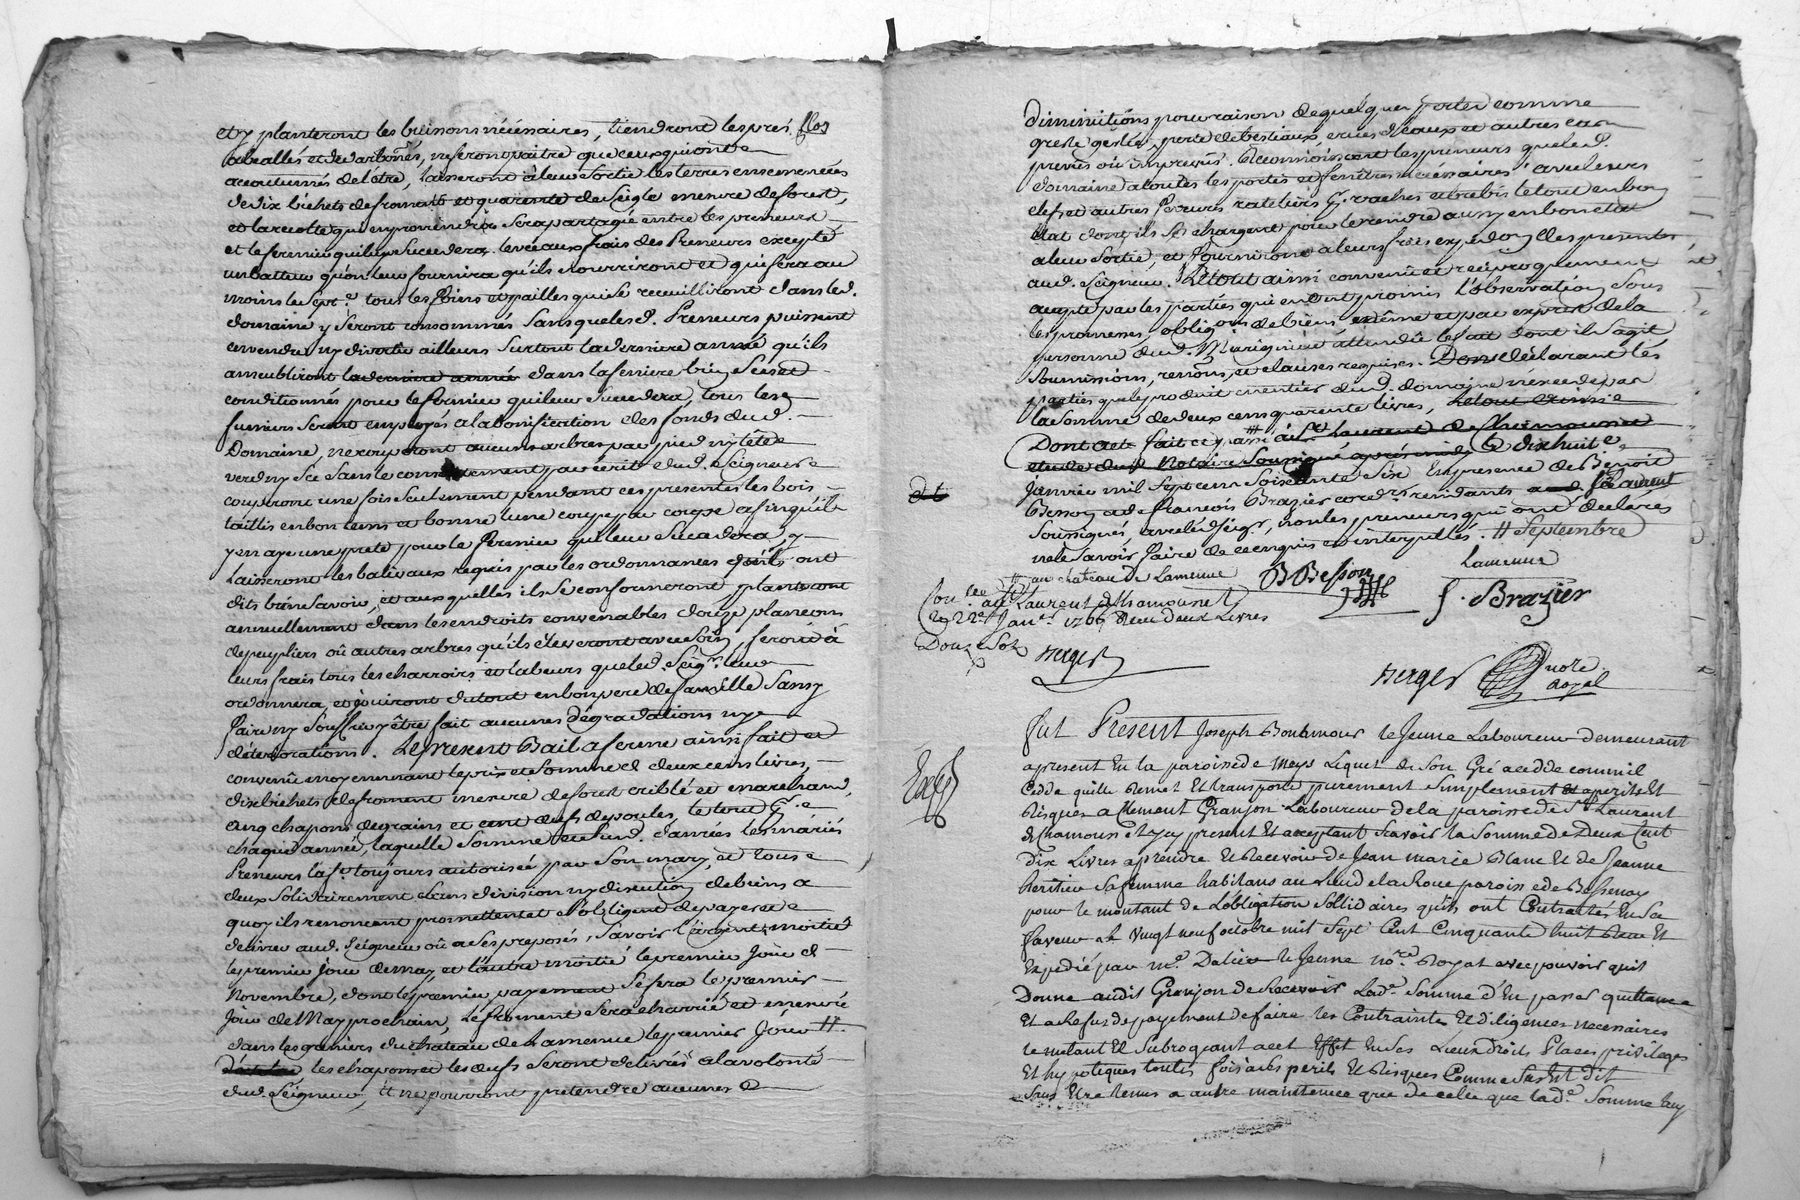 et y planteront les buissons nécéssaires, tiendront les prés clos
abeallés et de taupes, ne feront paitre que ceux qui ont
accoutumés de l'être, laisseront à leur sortie les terres ensemencées
de dix bichets de froment et quarente de seigle mesure de forest,
et la récolte qui en proviendra sera partagée entre les preneurs
et le fermier qui leur succedera levée aux frais des Preneurs excepté
un batteur qu'on leur fournira qu'ils nourriront et qui sera au
moins tous les foins et pailles qui se recueilliront dans led.
domaine y seront consommés sans que lesd. Preneurs puissent
en vendre ny divertir ailleurs surtout la derniere année qu'ils
ameubliront la derniere année dans la feniere bien secs et
conditionnés pour le fermier qui leur succedera, tous les
fumiers seront employés a la bonification des fonds dud.
Domaine, ne couperont aucuns arbres par pied ny tête
verd ny sec sans le consentement par écrit dud. Seigneur
couperont une fois seulement pendant ces presentes les bois
taillis en bon tems et bonne lune coupe par coupe afin qu'il
y en aye une prete pour le fermier qui leur succedera, y
laisseront les baliveaux requis par les ordonnances qu'ils ont
dits bien savoir, et aux quelles ils se conformeront planteront
annuellement dans les endroits convenables douze plancons
de peupliers où autres arbres qu'ils éléveront avec soin, feront à
leurs frais tous les charroirs et labeurs que led. Seigr. leur
ordonnera, et jouiront du tout en bon pere de famille sans y
faire ny souffrir y être fait aucunes dégradations ny
déteriorations. Le present Bail a ferme ainsi fait et
convenû moyennant le prix et somme de deux cens livres,
dix bichets de froment mesure de forest criblé et marchand,
cinq chapons de grains et cent oeufs de poules, le tout
chaque année, laquelle somme et fruid. d'années les mariés
Preneurs lad. toujours autorisée par son mary, et tous
deux solidairement sans division ny discution de biens a
quoy ils renoncent promettent et s'obligent de payer et
delivrer aud. Seigneur où a ses preposés, savoir l'argent moitié
le premier jour de may, et l'autre moitié le premier jour de
Novembre, dont le premier payement se fera le premier
jour de May prochain, le froment sera charrié et mesuré
dans les greniers du chateau de Lamenue le premier jour #.
les chapons et les oeufs seront delivrés a la volonté
dud. Seigneur, et ne pourront pretendre aucunes
diminutions pour raison de quelques pertes comme
gresle gelée, perte de bestiaux crues d'eaux et autres cas
prevûs où imprevus. Reconnoissent les preneurs que led.
domaine a toutes les portes et fenêtres nécéssaires avec leurs
clefs et autres ferrures rateliers vaches et brebis le tout en bon
état dont ils se chargent pour le rendre aussy en bon etat
a leur sortie, et fourniront a leurs frais expedon. des presentes
aud. Seigneur. Le tout ainsi convenû et reciproquement
accepté par les parties qui en ont promis l'observation sous
les promesses, obligons. de biens même et par exprès de la
personne dud. attendû le fait dont il s'agit,
soumissions, renons. et clauses requises. Donc declarant les
parties que le produit en entier dud. domaine n'éxcede pas
la somme de deux cens quarente livres,
Dont acte fait ce passé à St. Laurent de Chamousset
etude dud. Notaire soussigné après midy le dix huit
janvier mil sept cens soixante six En presence de Benoit
Besson et de francois Brazier cord. residants a St. Laurent
soussignés, avec led. Seigr, non les preneurs qui ont declarés
ne le savoir faire de ce enquis et interpellés. # Septembre
au chateau de Lamenue
B Besson
Lamenue
f. Brazier
Conlee. au St. Laurent de Chamousset
le 22e. Janer. 1766 Reçu deux Livres
Douze Sols Berger
Berger Nore. Royal
Expé
Fut Present Joseph Bonhmour le Jeune Laboureur demeurant
a present En la paroisse de Meys Lequel de son Gré a cedde comm'il
Cedde quitte Remet Et transporte purement simplement et a perils Et
Risques a Clement Granjon Laboureur de la paroisse de St. Laurent
de Chamousset Icy present Et acceptant savoir la somme de Deux Cent
Dix Livres a prendre Et Recevoir de Jean marie Blanc Et de Jeanne
heritier sa femme habitans au Lieu de la Roue paroisse de Bessenay
pour le montant de L'obligation sollidaires qu'ils ont Contractés En sa
faveur Le vingt neuf octobre mil sept Cent Cinquante huit Et
Expedié par Me. Dalier le Jeune nore. Royal avec pouvoir qu'il
Donne audit Granjon de Recevoir Lade. somme d'En passer quittance
Et a Refus de payement de faire les Contraintes Et diligences necessaires
le mettant Et subrogeant a cet Effet En ses Lieux droits places privileges
Et hypotteques toutes fois a ses perils Et Risques Comme sus Est dit
sans Etre tenus a autre maintenue que de celle que lade. somme luy